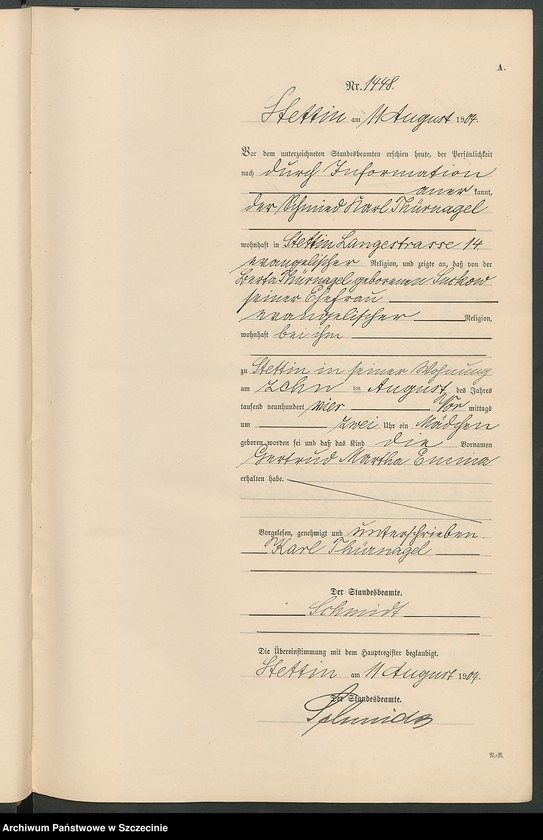 A.
Nr. 1498.
Stettin am 11 August 1904.
Vor dem unterzeichneten Standesbeamten erschien heute, der Persönlichkeit
nach durch Information
aner kannt,
der Schmied Karl Thürnagel
wohnhaft in Stettin Langestrasse 14
evangelischer Religion, und zeigte an, daß von der
Berta Thürnagel geborenen Suckow
seiner Ehefrau
evangelischer Religion,
wohnhaft bei ihm
zu Stettin in seiner Wohnung
am zehn ten August des Jahres
tausend neunhundert vier Vor mittags
um zwei Uhr ein Mädchen
geboren worden sei und daß das Kind die Vornamen
Gertrud Martha Emma
erhalten habe.
Vorgelesen, genehmigt und unterschrieben
Karl Thürnagel
Der Standesbeamte.
Schmidt
Die Übereinstimmung mit dem Hauptregister beglaubigt.
Stettin am 11 August 1904.
Der Standesbeamte.
Schmidt
Archiwum Państwowe w Szczecinie